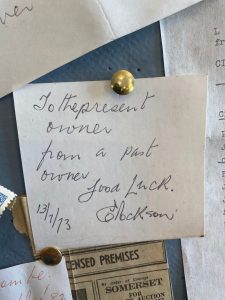 To the present
owner
from a past
owner Good Luck.
13/7/73
ENSED PREMISES
SOMERSET